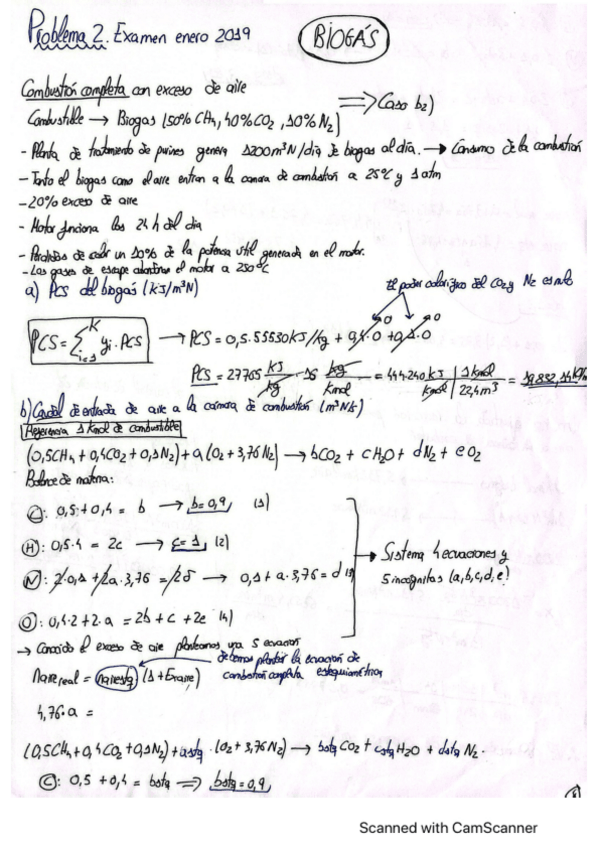 Problema 2. Examen enero 2019
BIOGÁS
Combustión completa con exceso de aire
=> Caso b2)
Combustible → Biogas (50% CH4, 40% CO2, 10% N2)
- Planta de tratamiento de purines genera 1200 m³N/día de biogas al día. → Consumo de la combustión
- Tanto el biogas como el aire entran a la camara de combustión a 25ºC y 1 atm
- 20% exceso de aire
- Motor funciona las 24 h del día
- Perdidas de calor un 10% de la potencia util generada en el motor.
- Los gases de escape abandonan el motor a 250ºC
a) PCS del biogás (KJ/m³N)
El poder calorifico del CO2 y N2 es nulo
PCS = Σ yi. PCS
K
i=1
→ PCS = 0,5. 55530 KJ/Kg + 0,4. 0 + 0,1. 0
0 0
PCS = 27765 KJ/Kg . 16 Kg/Kmol = 444.240 KJ/Kmol | 1 Kmol/22,4 m³ = 19.832,14 KJ/m
b) Caudal de entrada de aire a la cámara de combustión (m³N/s)
Referencia 1 Kmol de combustible
(0,5CH4 + 0,4CO2 + 0,1N2) + a (O2 + 3,76 N2) → bCO2 + cH2O + dN2 + eO2
Balance de materia:
C: 0,5 + 0,4 = b → b = 0,9 (1)
H: 0,5. 4 = 2c → c = 1 (2)
N: 2. 0,1 + 2a. 3,76 = 2d → 0,1 + a. 3,76 = d (3)
O: 0,4. 2 + 2. a = 2b + c + 2e (4)
→ Sistema 4 ecuaciones y
5 incógnitas (a,b,c,d,e)
→ Conocido el exceso de aire planteamos una 5 ecuación
debemos plantear la ecuación de
combustión completa estequiométrica
naire real = naire stq (1 + Eaire)
4,76. a =
(0,5CH4 + 0,4 CO2 + 0,1N2) + astq . (O2 + 3,76 N2) → bstq CO2 + cstq H2O + dstq N2.
C: 0,5 + 0,4 = bstq => bstq = 0,9
1
Scanned with CamScanner